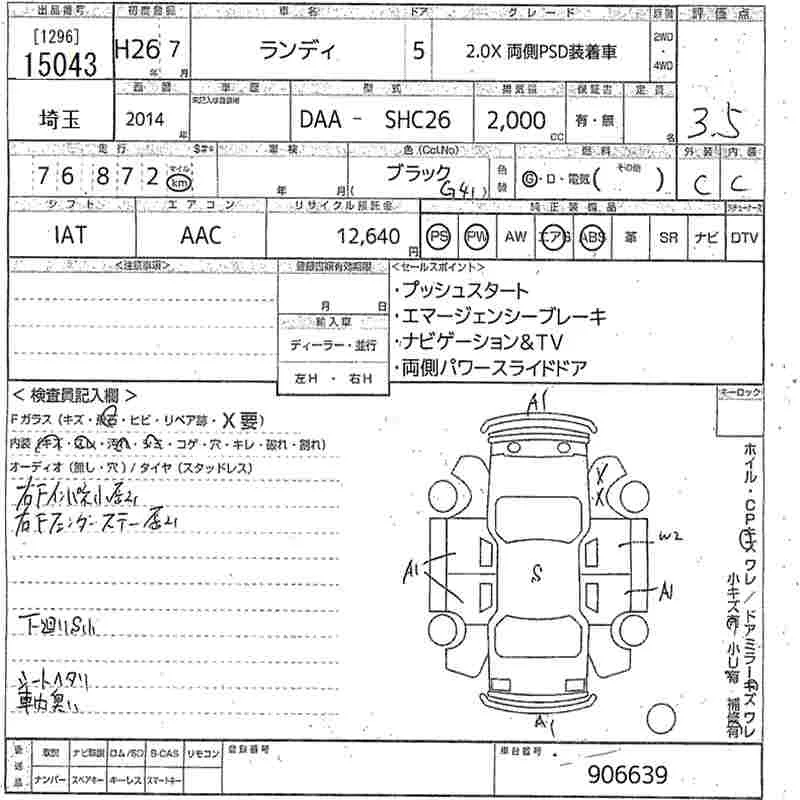 出品番号 初度登録 車名 ドア グレード 評価点
[1296]
15043 H26年 7月 ランディ 5 2.0X 両側PSD装着車 2WD・4WD
車歴 型式 排気量 保証書 定員
埼玉 2014年 DAA - SHC26 2,000cc 有・無 名 3.5
走行 車検 色(Col.No) 燃料 外装 内装
76 872 マイル km 年 月 ブラック(G41) 色替 G・D・電気( その他 ) C C
シフト エアコン リサイクル預託金 純正装備品
IAT AAC 12,640円 PS PW AW エアB ABS 革 SR ナビ DTV
<注意事項> 登録書類有効期限 <セールスポイント>
月 日
輸入車
ディーラー・並行
左H・右H
・プッシュスタート
・エマージェンシーブレーキ
・ナビゲーション&TV
・両側パワースライドドア
<検査員記入欄> モーロック
Fガラス(キズ・飛石・ヒビ・リペア跡・X要)
内装(キズ・汚れ・シミ・コゲ・穴・キレ・破れ・割れ)
オーディオ(無し・穴)/タイヤ(スタッドレス)
右Fインパネ小凹
右Fフェンダーステー凹
下廻りS小
シートヘタリ
車内臭い
A1
X
X
W2
S
A1
A1
A1
ホイル・CPキズ ワレ/ドアミラーキズ ワレ
小キズ有 小U有 補修有
後送品 取説 ナビ取説 ロム/SD B-CAS リモコン 登録番号 車台番号
ナンバー スペアキー キーレス スマートキー 906639